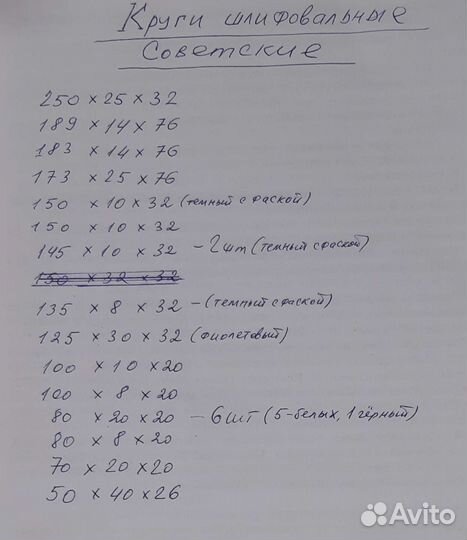 Круги шлифовальные
Советские
250 × 25 × 32
189 × 14 × 76
183 × 14 × 76
173 × 25 × 76
150 × 10 × 32 (темный с фаской)
150 × 10 × 32
145 × 10 × 32 – 2 шт (темный с фаской)
150 × 32 × 32
135 × 8 × 32 – (темный с фаской)
125 × 30 × 32 (фиолетовый)
100 × 10 × 20
100 × 8 × 20
80 × 20 × 20 – 6 шт (5-белых, 1 чёрный)
80 × 8 × 20
70 × 20 × 20
50 × 40 × 26
Avito